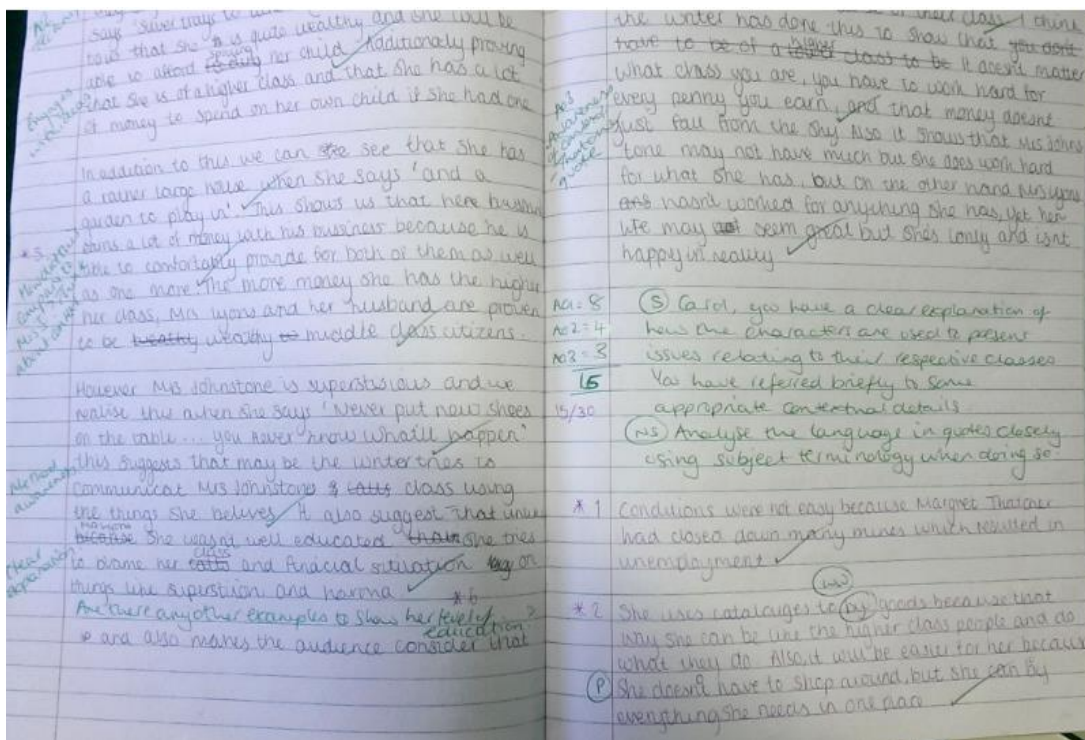 says 'silver trays to
to us that she is quite wealthy and she will be
able to afford spoiling her child. Additionally proving
that she is of a higher class and that she has a lot
of money to spend on her own child if she had one
In addition to this we can see see that she has
a rather large house when she says 'and a
garden to play in'. This shows us that here
owns a lot of money with his business because he is
able to comfortably provide for both of them as well
as one more. The more money she has the higher
her class, Mrs lyons and her husband are proven
to be wealthy wealthy to middle class citizens.
However Mrs Johnstone is superstisious and we
realise this when she says 'Never put new shoes
on the table... you never know whatll happen'
this suggests that may be the writer tries to
communicat Mrs Johnstones class using
the things she belives. It also suggest that
because she wasn't well educated she tries
to blame her class and finacial situation on
things like superstition and karma
*6
Are there any other examples to show her level of
education?
and also makes the audience consider that
Method
awareness
Clear
explanation
*3
of their class. I think
the writer has done this to show that you don't
have to be of a higher class to be it doesnt matter
What class you are, you have to work hard for
every penny you earn, and that money doesnt
just fall from the sky. Also it shows that Mrs Johns
tone may not have much but she does work hard
for what she has, but on the other hand Mrs lyons
hasn't worked for anything she has, yet her
life may not seem great but she's lonly and isnt
happy in reality
AO3
Awareness
of context
AO1 = 8
AO2 = 4
AO3 = 3
15
15/30
(S) Carol, you have a clear explanation of
how the characters are used to present
issues relating to their respective classes
You have referred briefly to some
appropriate contextual details.
(NS) Analyse the language in quotes closely
using subject terminology when doing so.
*1 Conditions were not easy because Margret Thatcher
had closed down many mines which resulted in
unemployment
(WW)
*2 She uses catalauges to by goods because that
way she can be like the higher class people and do
what they do. Also, it will be easier for her because
(P) She doesn't have to shop around, but she can by
everything she needs in one place